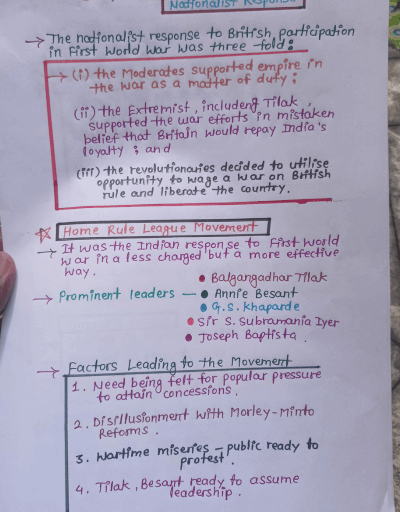 Nationalist Response
→ The nationalist response to British participation
in First World War was three-fold:
→ (i) the Moderates supported empire in
the war as a matter of duty;
(ii) the Extremist, includeng Tilak,
supported the war efforts in mistaken
belief that Britain would repay India's
loyalty; and
(iii) the revolutionaries decided to utilise
opportunity to wage a war on British
rule and liberate the country.
☆ Home Rule League Movement
→ It was the Indian response to First World
war in a less charged but a more effective
way.
• Balgangadhar Tilak
→ Prominent leaders — • Annie Besant
• G.S. Khaparde
• Sir S. Subramania Iyer
• Joseph Baptista.
→ Factors Leading to the Movement
1. Need being felt for popular pressure
to attain concessions.
2. Disillusionment with Morley-Minto
Reforms.
3. Wartime miseries – public ready to
protest.
4. Tilak, Besant ready to assume
leadership.